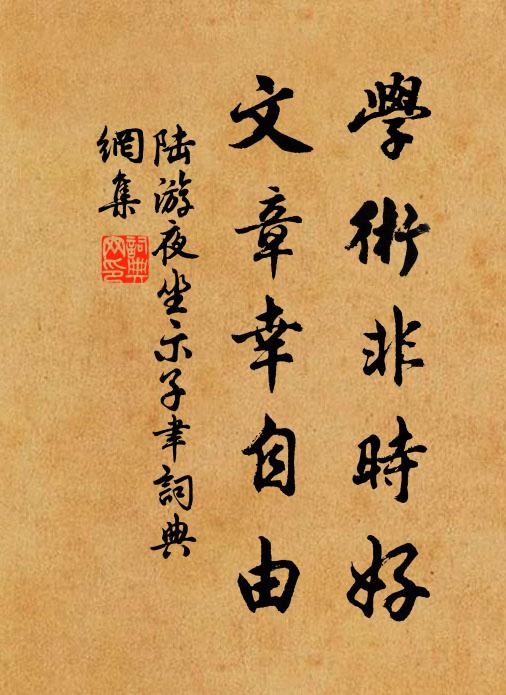 學術非時好
文章幸自由
陸游夜坐示子聿詞典
網集
詞典
网印